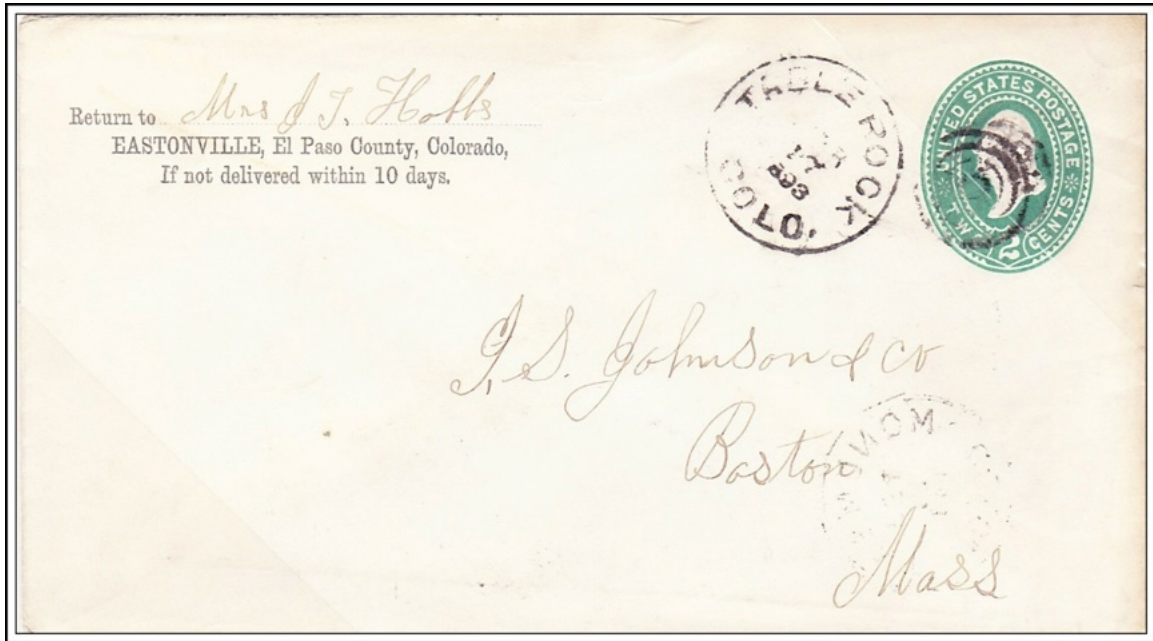 Return to Mrs J T. Hobbs
EASTONVILLE, El Paso County, Colorado,
If not delivered within 10 days.
TABLE ROCK
COLO.
893
UNITED STATES POSTAGE
TWO 2 CENTS
I. S. Johnson & Co
Boston
Mass